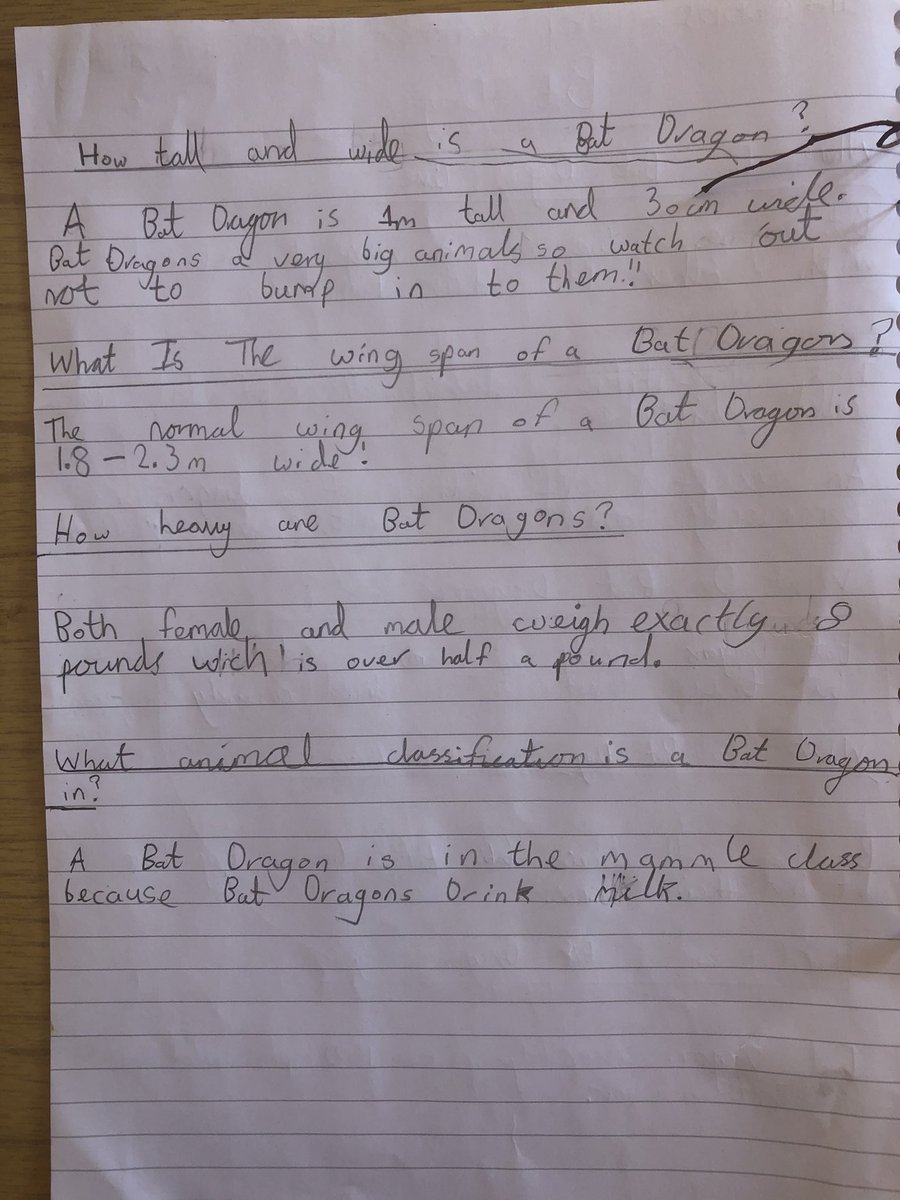 How tall and wide is a Bat Dragon?
A Bat Dragon is 1m tall and 30cm wide.
Bat Dragons a very big animals so watch out
not to bump in to them!!
What Is The wing span of a Bat Dragon?
The normal wing span of a Bat Dragon is
1.8 - 2.3m wide!
How heavy are Bat Dragons?
Both female and male weigh exactly 8
pounds wich is over half a pound.
What animal classification is a Bat Dragon
in?
A Bat Dragon is in the mammle class
because Bat Dragons Drink Milk.